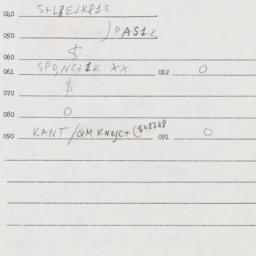 040 S+L8EJKP1S
050 ) PAS1K
060 $
061 SPO,NC+1K XX 062 0
070 $
080 0
090 KANT /QM KNEJC+ ($48268 092 0